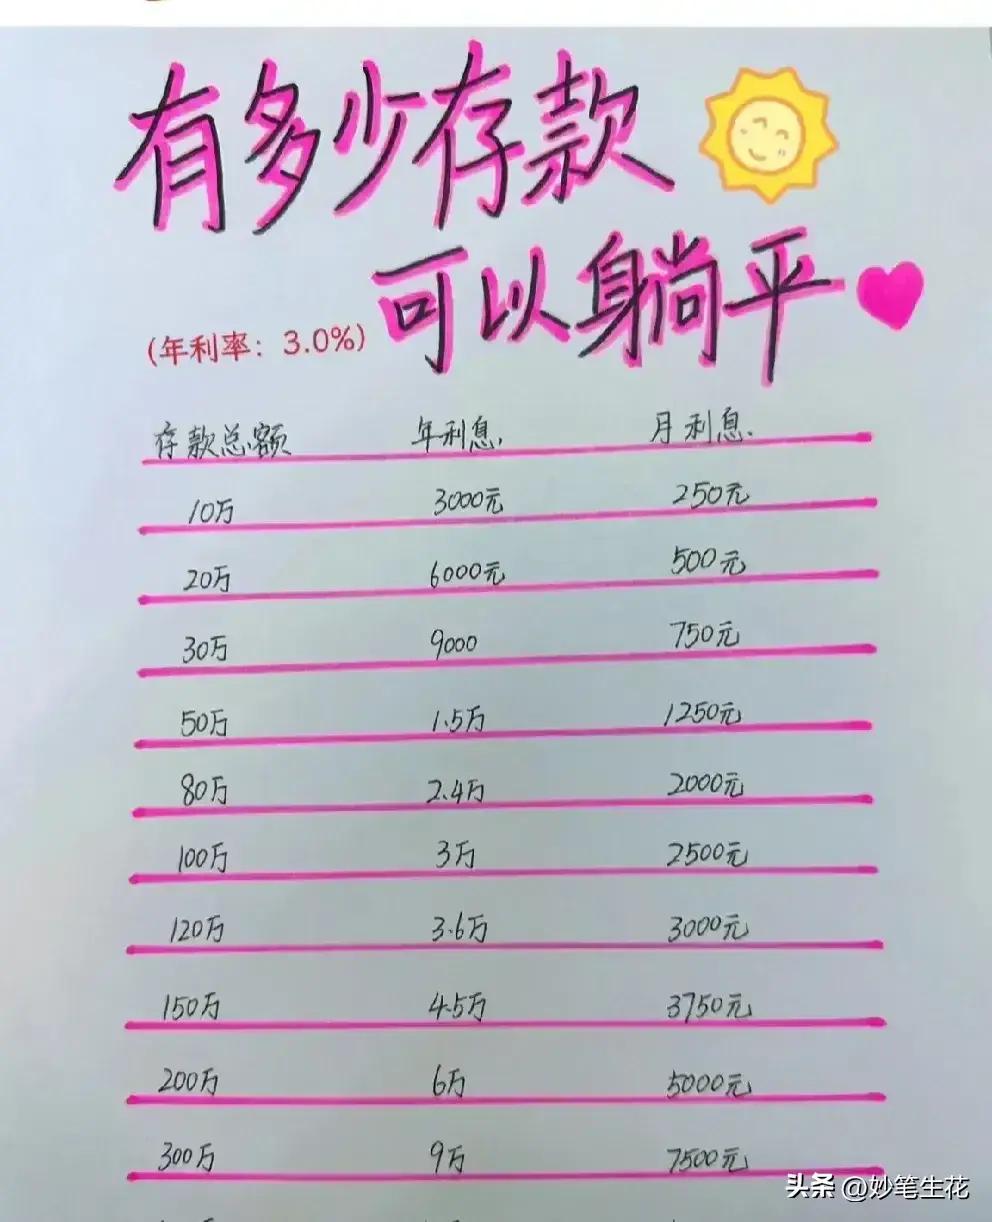 有多少存款
可以躺平
(年利率：3.0%)
存款总额 年利息 月利息
10万 3000元 250元
20万 6000元 500元
30万 9000 750元
50万 1.5万 1250元
80万 2.4万 2000元
100万 3万 2500元
120万 3.6万 3000元
150万 4.5万 3750元
200万 6万 5000元
300万 9万 7500元
头条 @妙笔生花